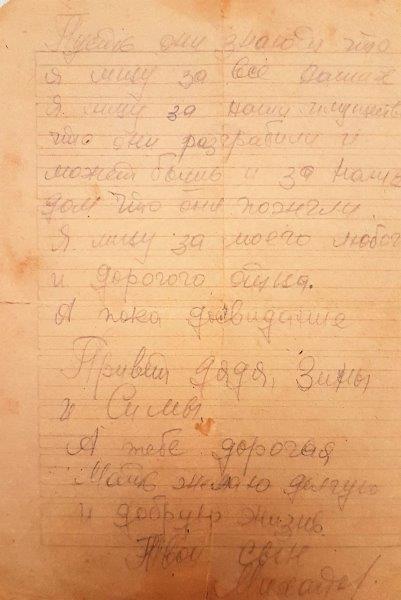 Пусть они знают что
я мщу за всё
Я мщу за наше имуществ
что они разграбили и
может быть и за наш
дом что они пожгли
Я мщу за моего любог
и дорогого отца.
А пока досвидание
Привет дядя, Зины
и Симы.
А тебе дорогая
Мать желаю долгую
и добрую жизнь
Твой сын